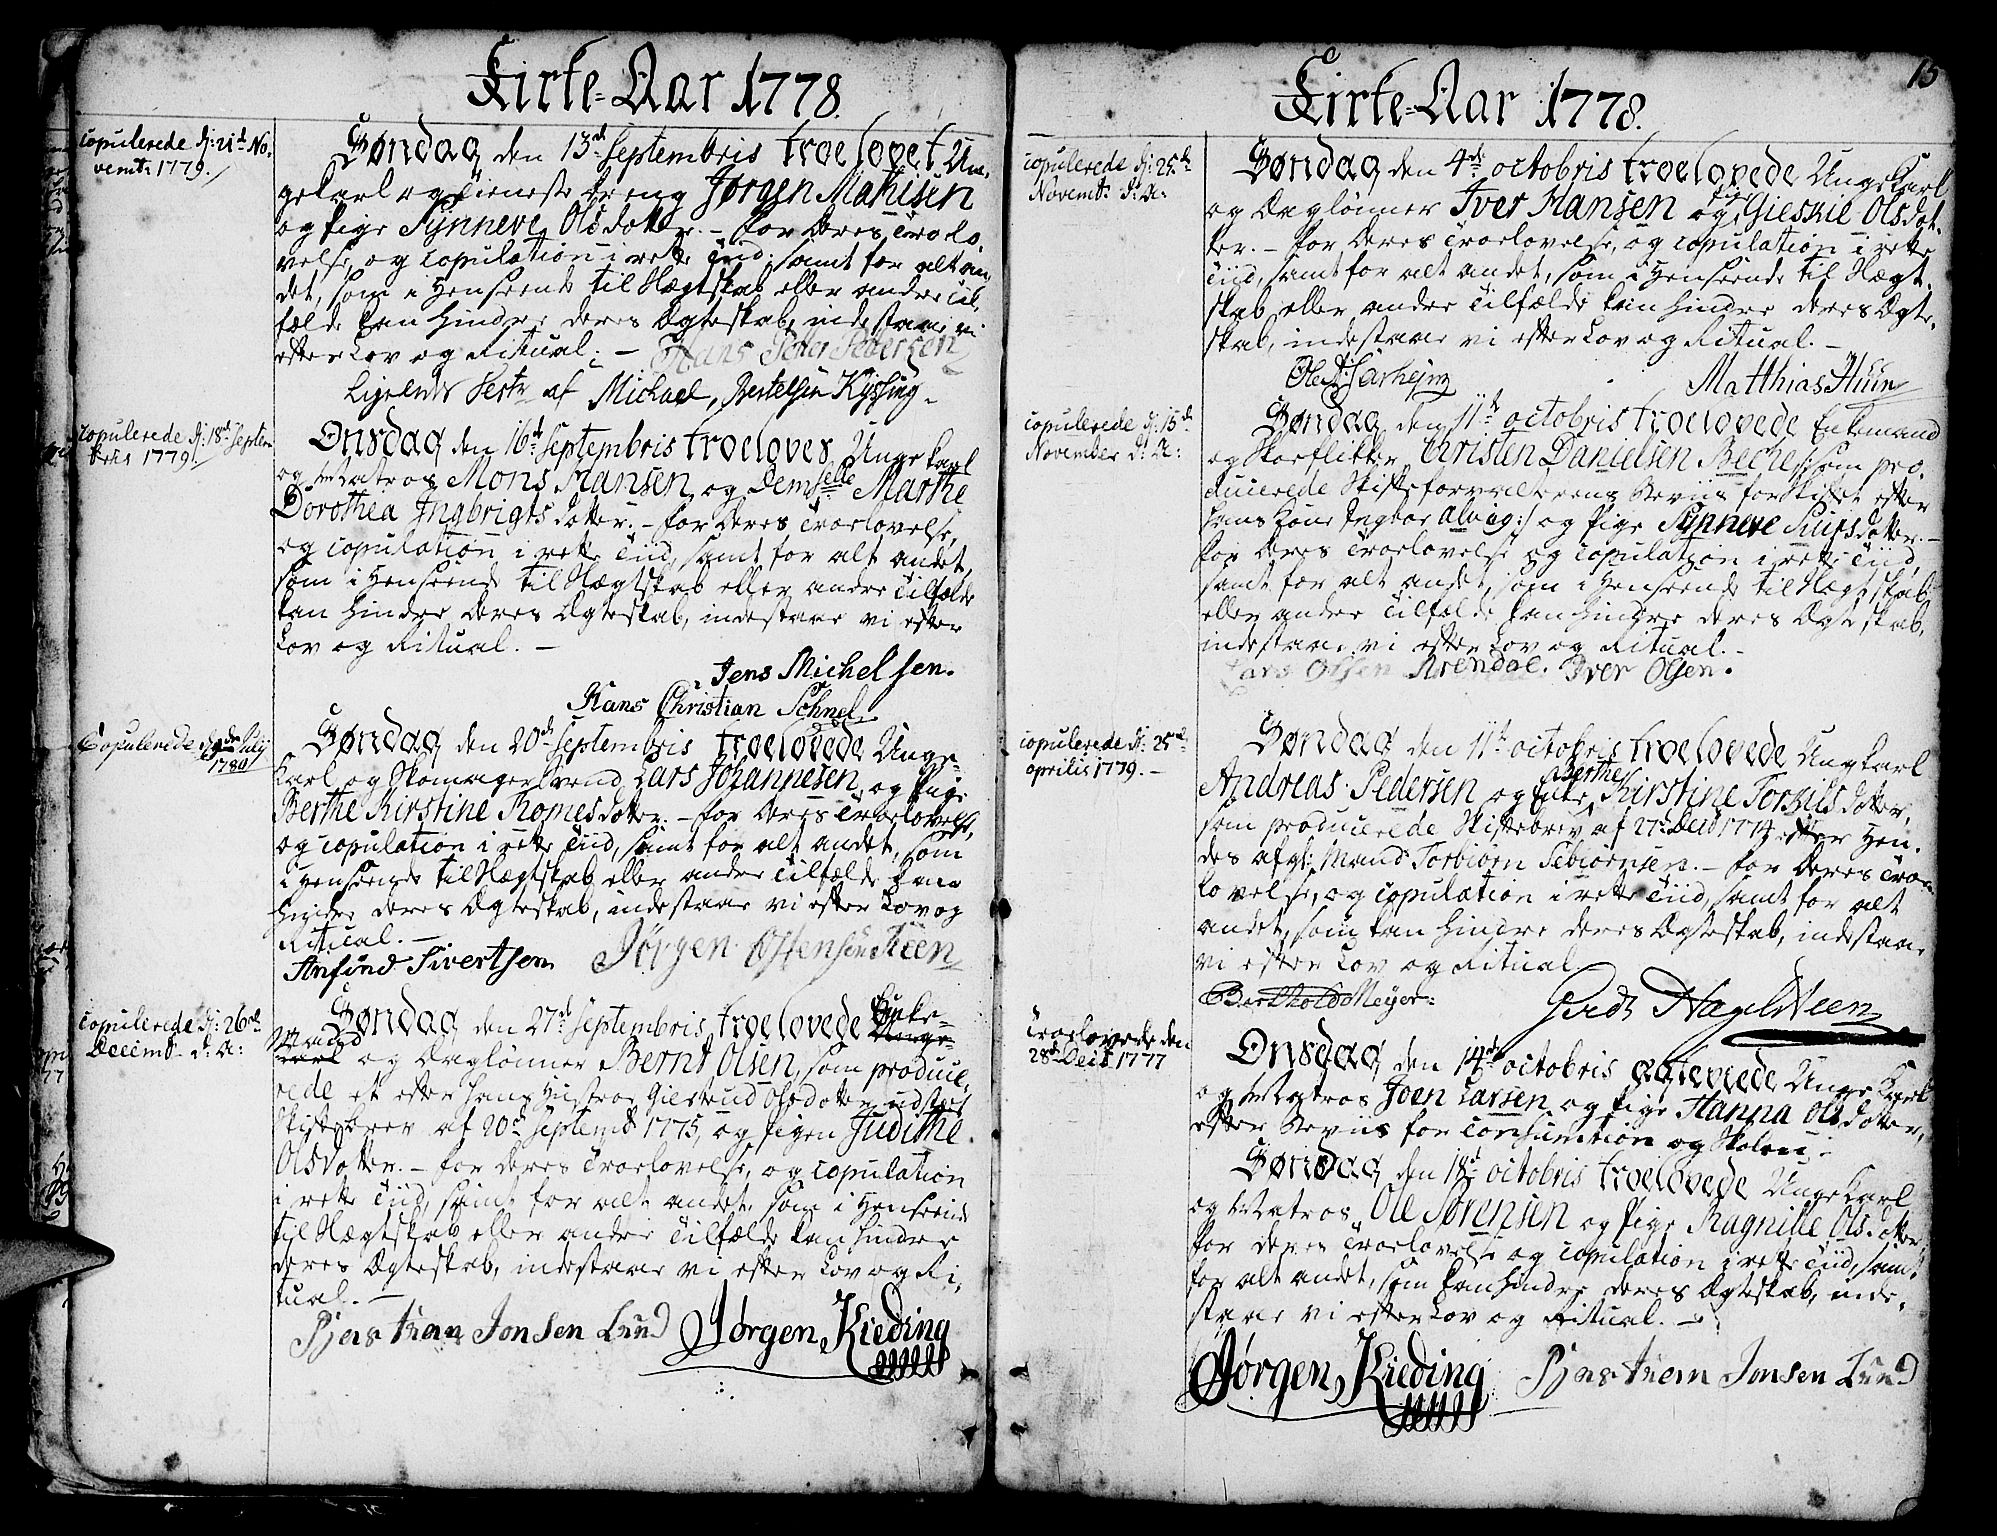 Kirke-Aar 1778.
copulerede d: 21de No-
vembr 1779.
Søndag den 13de Septembris troelovet Un-
gekarl og Tieneste Dreng Jørgen Mathisen
og Pige Synneve Olsdotter. - for deres Troelo-
velse, og copulation i rette Tiid, samt for alt an-
det, som i Henseende til Slægtskab eller andre Til-
fælde kan hindre deres Ægteskab, indestaae vi
efter Lov og Ritual. - Hans Peter Pedersen
Ligeledes Testr af Michael, Bertelsen Kyssing.
copulerede d: 18de Septem-
bris 1779.
Onsdag den 16de Septembris troeloves Unge karl
og Matros Mons Hansen og Demselle Marthe
Dorothea Ingbrigtsdotter. - for deres Troelovelse,
og copulation i rette Tiid, samt for alt andet,
som i Henseende til Slægtskab eller andre Tilfælde
kan hindre deres Ægteskab, indestaae vi efter
Lov og Ritual. -
Jens Michelsen.
Hans Christian Schnel
Copulerede d. July
1780
Søndag den 20de Septembris troelovede Unge-
Karl og Skomager Svend Lars Johannesen, og Pige
Berthe Kirstine Romesdotter. - for deres Troelovelse,
og copulation i rette Tiid, samt for alt andet, som
i Henseende til Slægtskab eller andre Tilfælde kan
hindre deres Ægteskab, indestaae vi efter Lov og
Ritual. -
Anfind Sivertsen Jørgen Ostensen Steen
copulerede d: 26de
Decembr d: A:
Søndag den 27de Septembris, troelovede Enke-
Mand og Daglønner Bernt Olsen, som produce-
rede et efter hans Hustroe Giertrud Olsdotter udstæd
Skiftebrev af 20de Septembr 1775, og Pigen Judithe
Olsdotter. - for deres Troelovelse, og copulation
i rette Tiid, samt for alt andet, som i Henseende
til Slægtskab eller andre Tilfælde kan hindre
deres Ægteskab, indestaae vi efter Lov og Ri-
tual. -
Jonsen Lund Jørgen Kieding
15
Kirke-Aar 1778.
copulerede d: 25de
Novembr d: A:
Søndag den 4de octobris troelovede Unge Karl
og Daglønner Iver Hansen og Pige Gieskie Olsdot-
ter. - for deres Troelovelse, og copulation i rette
Tiid, samt for alt andet, som i Henseende til Slægt-
skab eller andre Tilfælde kan hindre deres Ægte-
skab, indestaae vi efter Lov og Ritual. -
Matthias Huin
copulerede d: 15de
November d: A:
Søndag den 11te octobris troelovede Enkemand
og Skoeflikker Christen Danielsen Beche /: som pro-
ducerede Skifteforvalterens Beviis for Skiftet efter
hans Kone Ingbor Alvig :/ og Pige Synneve Siursdotter. -
for deres Troelovelse og copulation i rette Tiid,
samt for alt andet, som i Henseende til Slægtskab
eller andre Tilfælde kan hindre deres Ægteskab,
indestaae vi efter Lov og Ritual. -
Lars Olsen Arendal. Iver Olsen.
copulerede d: 25de
aprilis 1779. -
Søndag den 11te octobris troelovede Ungkarl
Andreas Pedersen og Enke Berthe Kirstine Torkildsdotter,
som producerede Skiftebrev af 27de Decb 1774 efter Hen-
des afg: Mand Torbiørn Tebiørnsen. - for deres Troe-
lovelse, og copulation i rette Tiid, samt for alt
andet, som kan hindre deres Ægteskab, indestaae
vi efter Lov og Ritual
Berthold Meyer: Gerdt Hagelsteen
Troelovede den
28de Decb 1777
Onsdag den 14de octobris ægteviede Unge Karl
og Matros Joen Larsen og Pige Hanna Olsdotter,
efter Beviis for Consumtion og Skolen.
Søndag den 18de octobris troelovede Unge Karl
og Matros Ole Sørensen og Pige Ragnille Olsdotter,
for deres Troelovelse og copulation i rette Tiid, samt
for alt andet, som kan hindre deres Ægteskab, inde-
staae vi efter Lov og Ritual. -
Jørgen Kieding Jonsen Lund